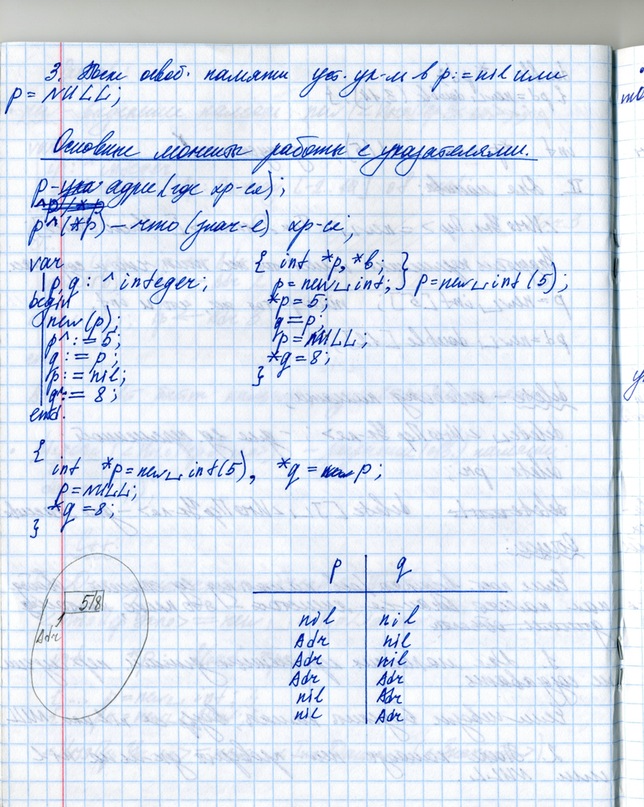 3. После освоб. памяти уст. ук-м в p:=nil или
p = NULL;
Основные моменты работы с указателями.
p - адрес (где хр-ся);
p^(*p) – что (знач-е) хр-ся;
var
p, q : ^integer;
begin
new(p);
p^:=5;
q:=p;
p:=nil;
q^:= 8;
end.
{ int *p, *b; }
p=new␣int; } p=new␣int(5);
*p=5;
q=p;
p=NULL;
*q=8;
}
{
int *p=new␣int(5), *q = p;
p=NULL;
*q=8;
}
5/8
Adr
p q
nil nil
Adr nil
Adr nil
Adr Adr
nil Adr
nil Adr